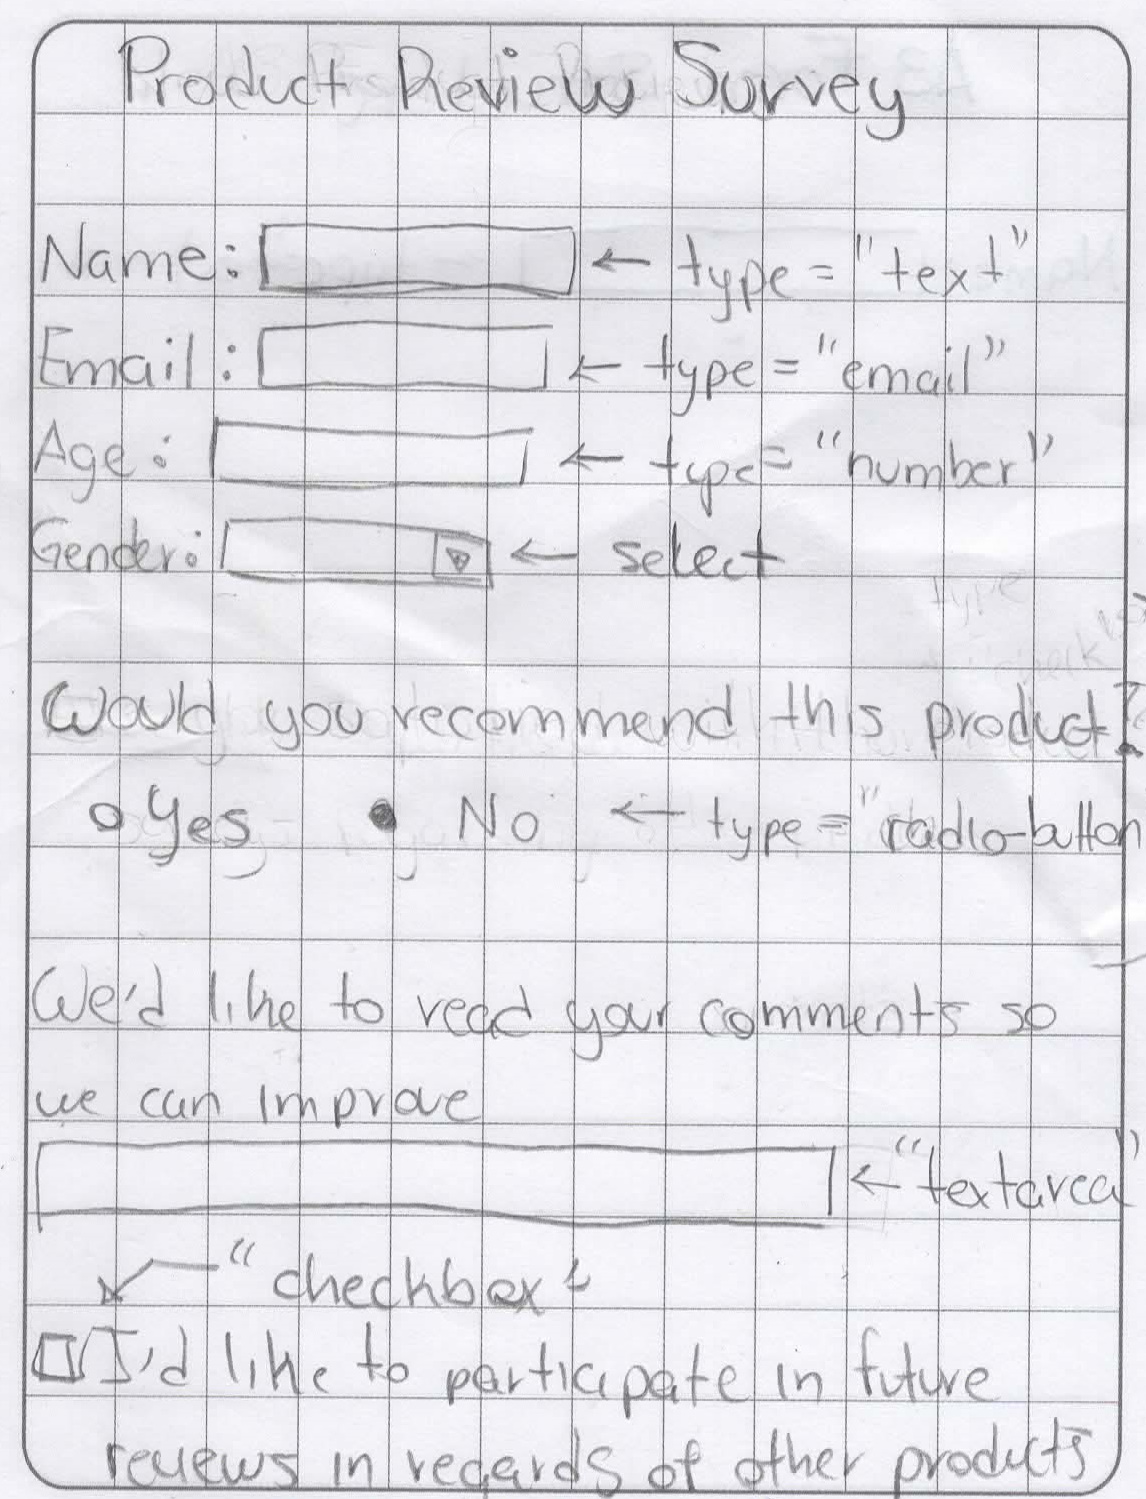 Product Review Survey
Name: ← type = "text"
Email: ← type = "email"
Age: ← type = "number"
Gender: ← select
type
check
Would you recommend this product?
Yes No ← type = "radio-button
We'd like to read your comments so
we can improve
← "textarea"
"checkbox"
I'd like to participate in future
reviews in regards of other products